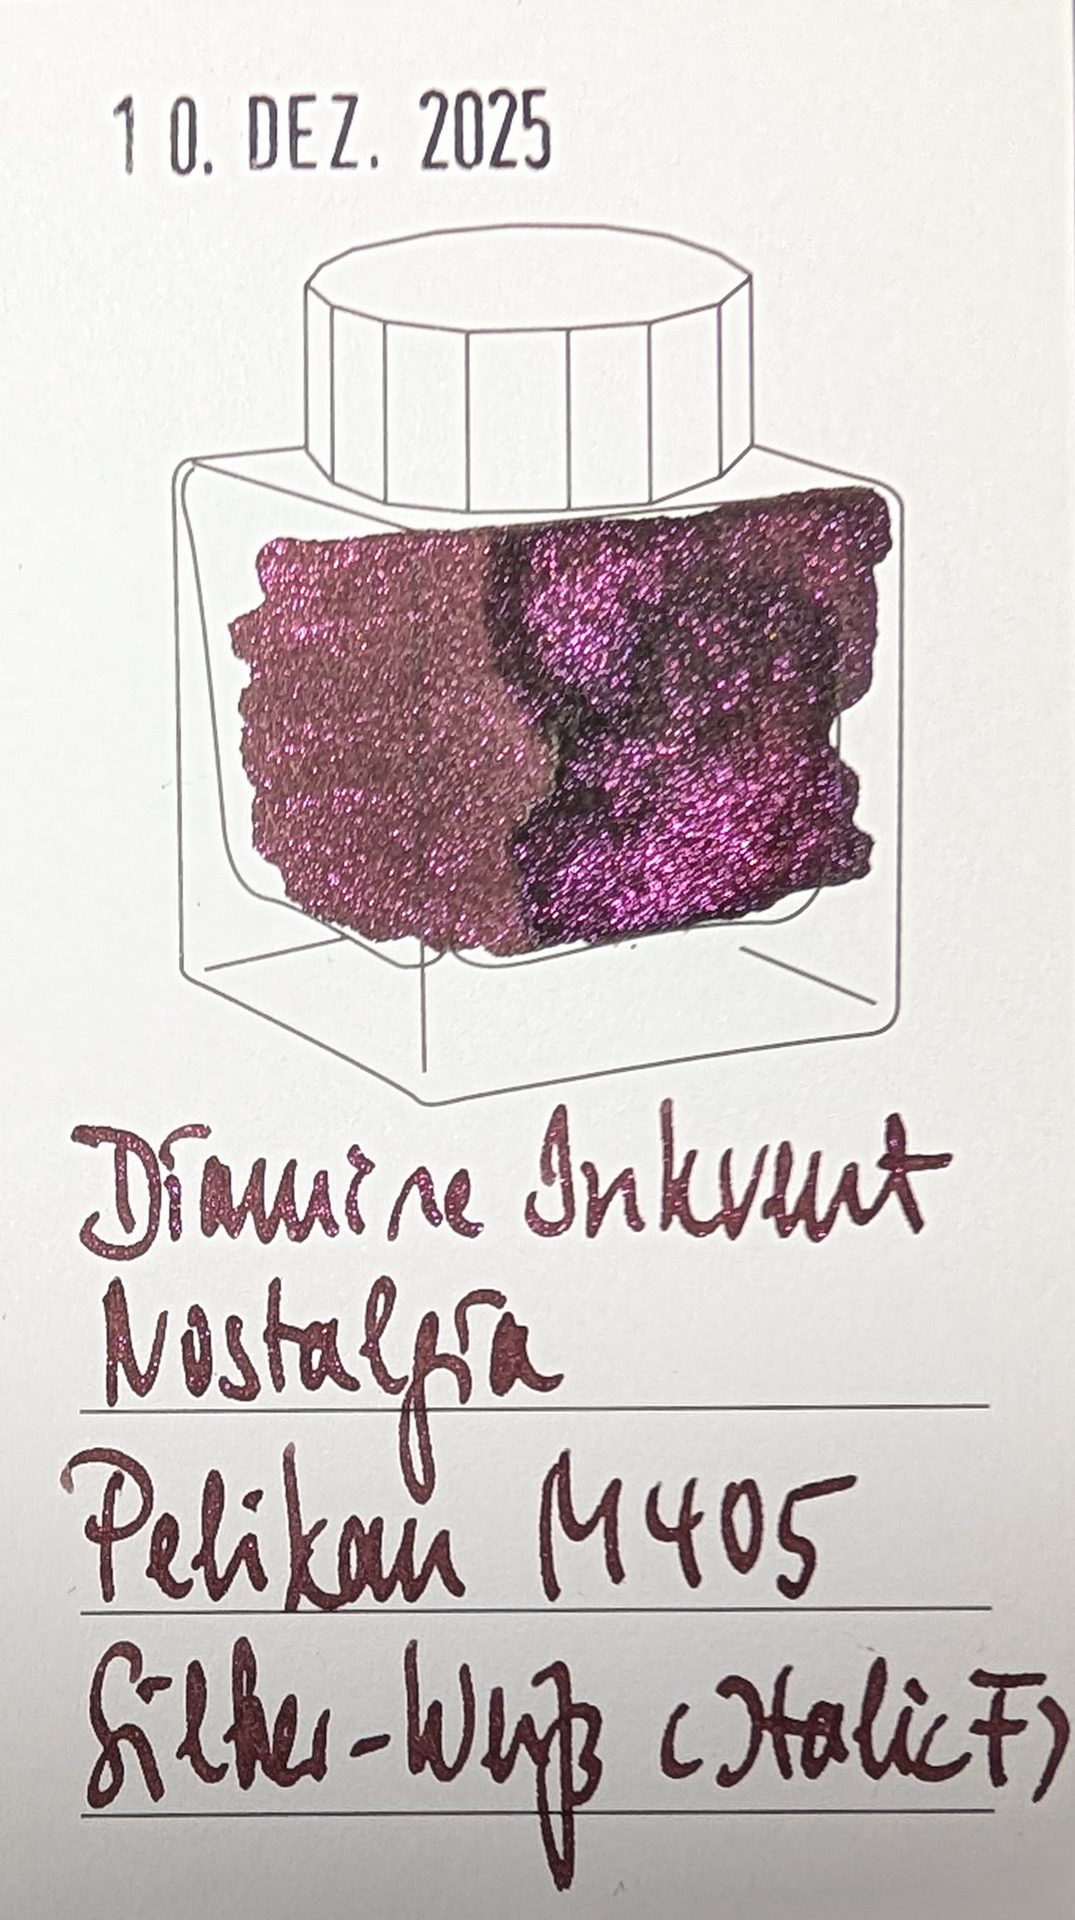 10. DEZ. 2025
Diamine Inkvent
Nostalgia
Pelikan M405
Silber-Weiß (Italic F)